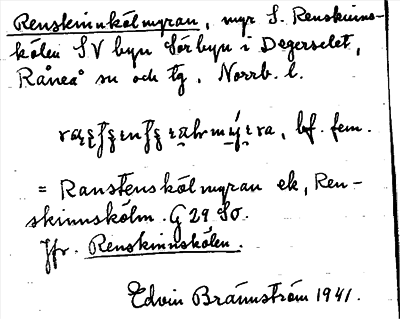 Renskinnkölmyran, myr S. Renskinns-
kölen SV byn Sörbyn i Degerselet,
Råneå sn och tg, Norrb. l.
bf. fem.
= Ranstenskölmyran ek, Ren-
skinnskölm. G 29 SO.
Jfr. Renskinnskölen.
Edvin Brännström 1941.